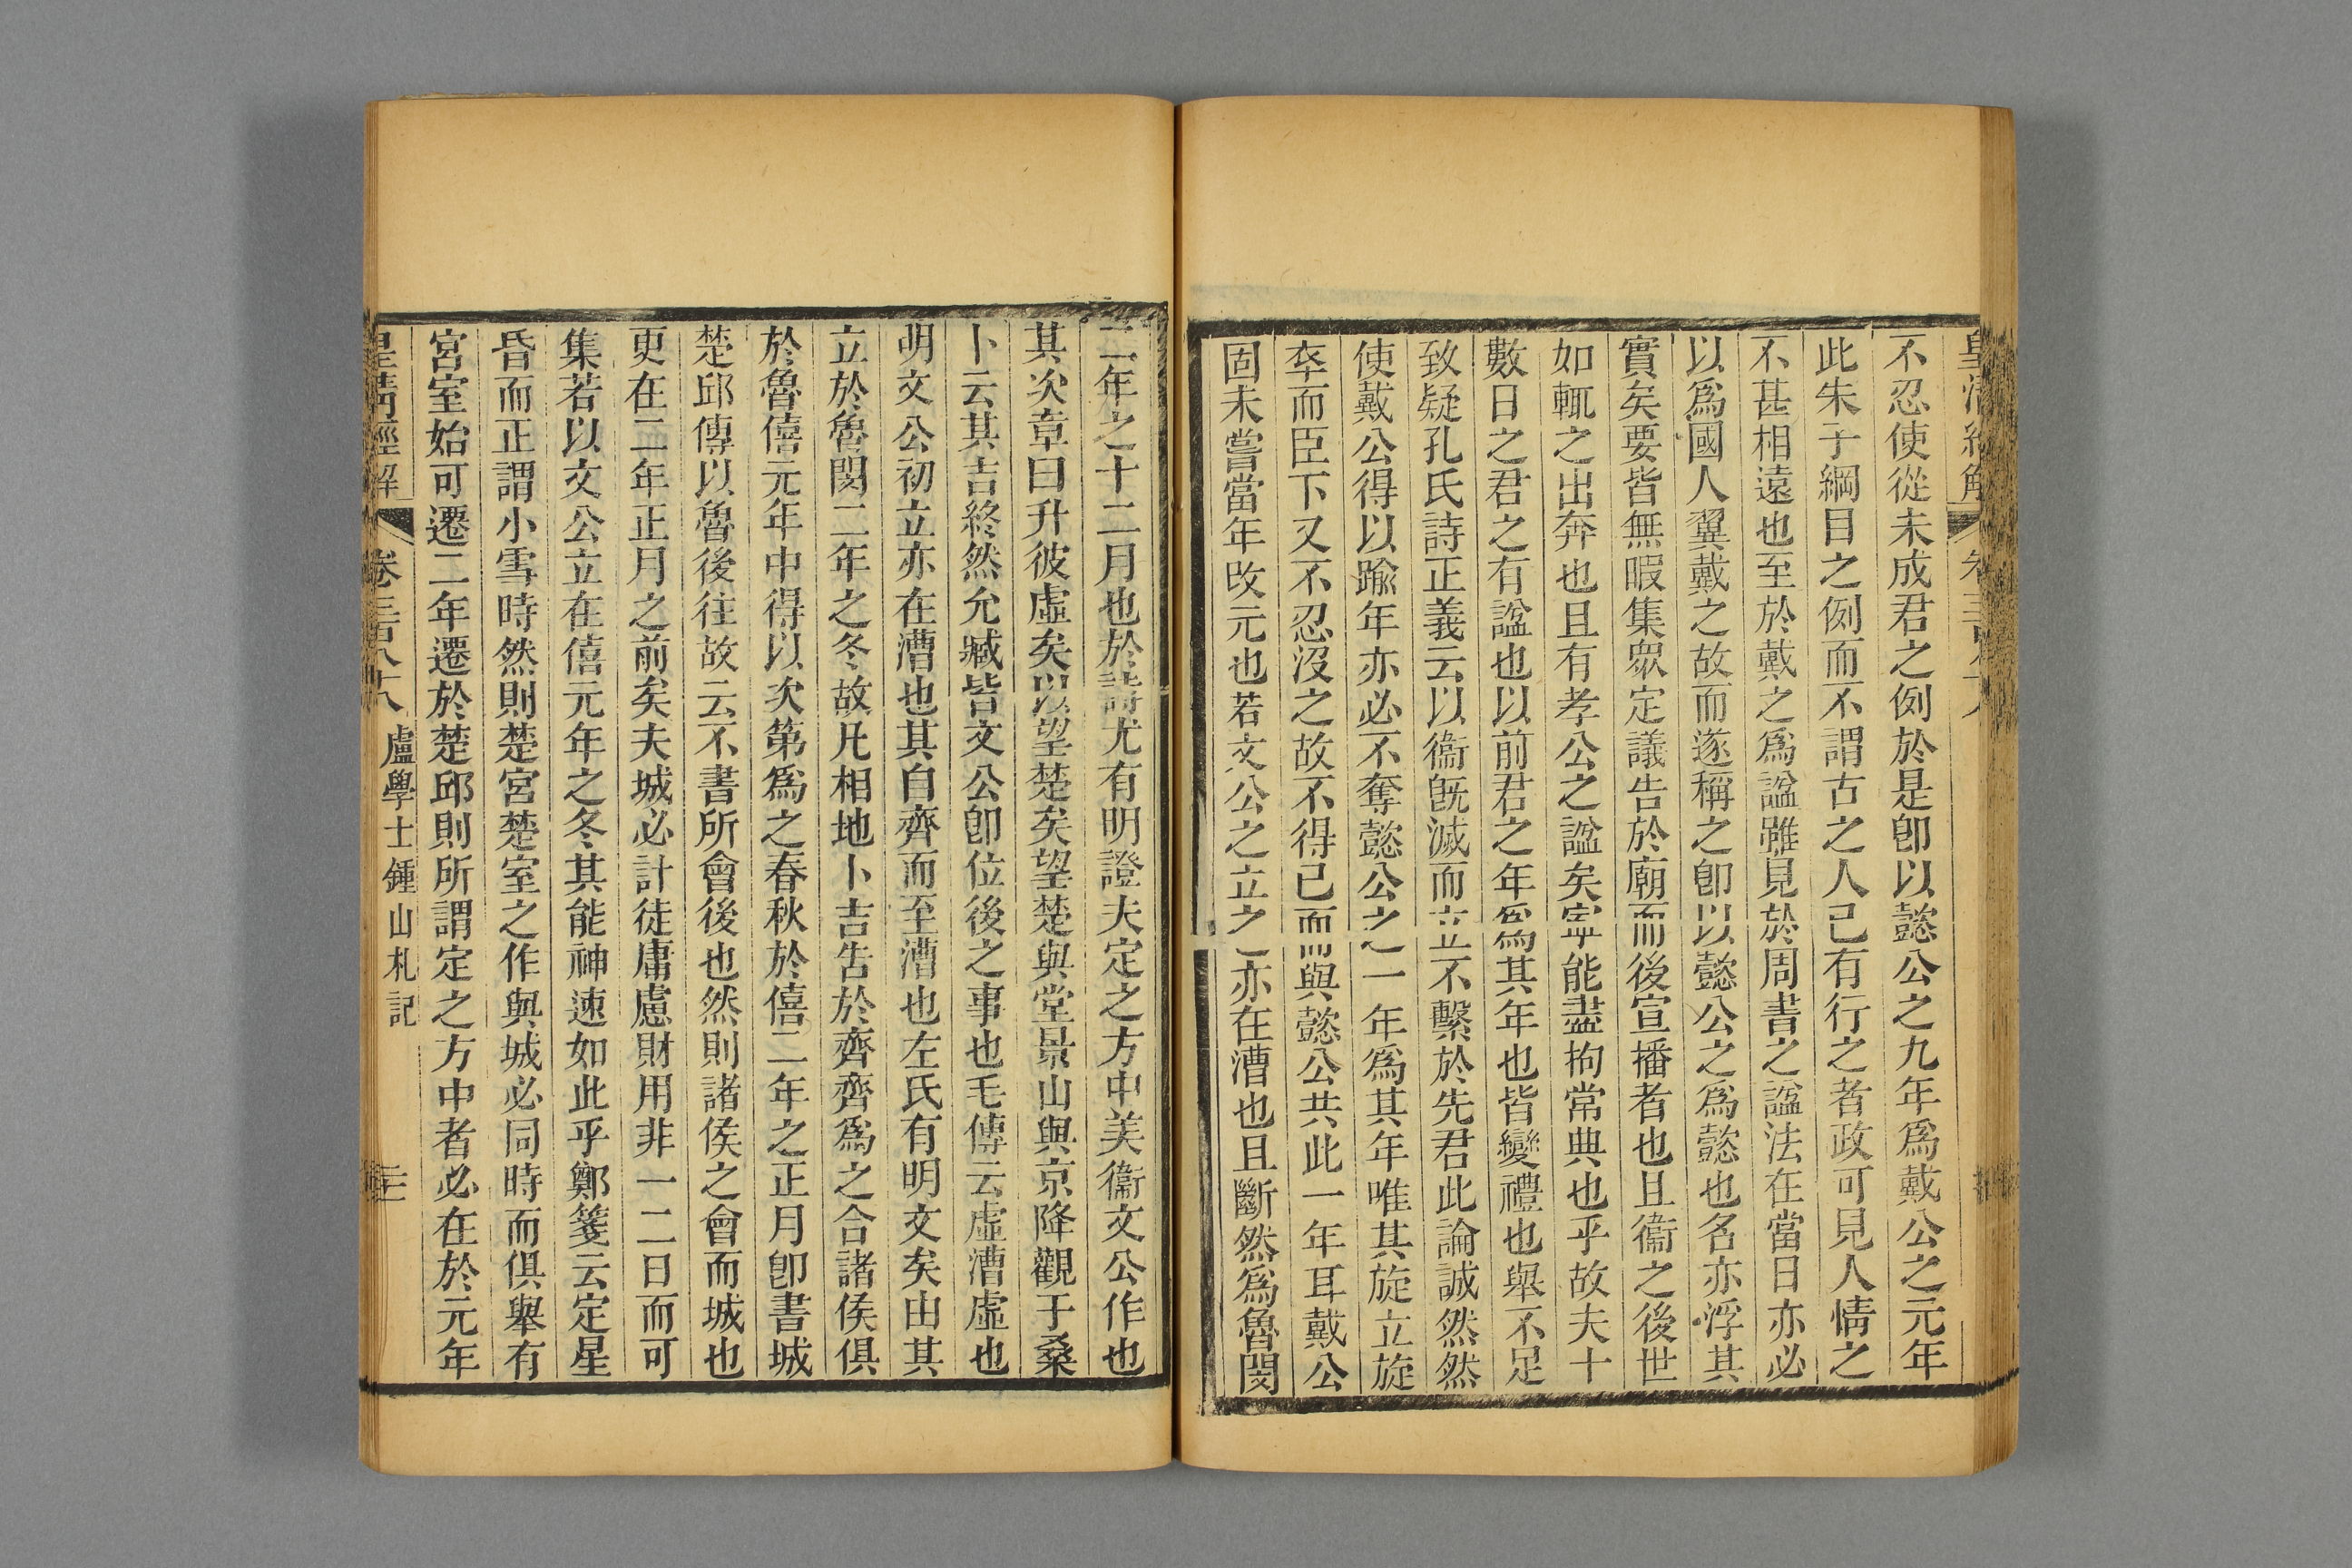 不忍使從未成君之例於是卽以懿公之九年爲戴公之元年
此朱子綱目之例而不謂古之人已有行之者政可見人情之
不甚相遠也至於戴之爲諡雖見於周書之諡法在當日亦必
以爲國人翼戴之故而遂稱之卽以懿公之爲懿也名亦浮其
實矣要皆無暇集眾定議告於廟而後宣播者也且衞之後世
如輒之出奔也且有孝公之諡矣寧能盡拘常典也乎故夫十
數日之君之有諡也以前君之年爲其年也皆變禮也舉不足
致疑孔氏詩正義云以衞旣滅而立不繫於先君此論誠然然
使戴公得以踰年亦必不奪懿公之一年爲其年唯其旋立旋
卒而臣下又不忍沒之故不得已而與懿公共此一年耳戴公
固未嘗當年改元也若文公之立之亦在漕也且斷然爲魯閔
二年之十二月也於詩尤有明證夫定之方中美衞文公作也
其次章曰升彼虛矣以望楚矣望楚與堂景山與京降觀于桑
卜云其吉終然允臧皆文公卽位後之事也毛傳云虛漕虛也
明文公初立亦在漕也其自齊而至漕也左氏有明文矣由其
立於魯閔二年之冬故凡相地卜吉告於齊齊爲之合諸侯俱
於魯僖元年中得以次第爲之春秋於僖二年之正月卽書城
楚邱傳以魯後往故云不書所會後也然則諸侯之會而城也
更在二年正月之前矣夫城必計徒庸慮財用非一二日而可
集若以文公立在僖元年之冬其能神速如此乎鄭箋云定星
昏而正謂小雪時然則楚宮楚室之作與城必同時而俱舉有
宮室始可遷二年遷於楚邱則所謂定之方中者必在於元年
皇淸經解 卷三百八十八 盧學士鍾山札記